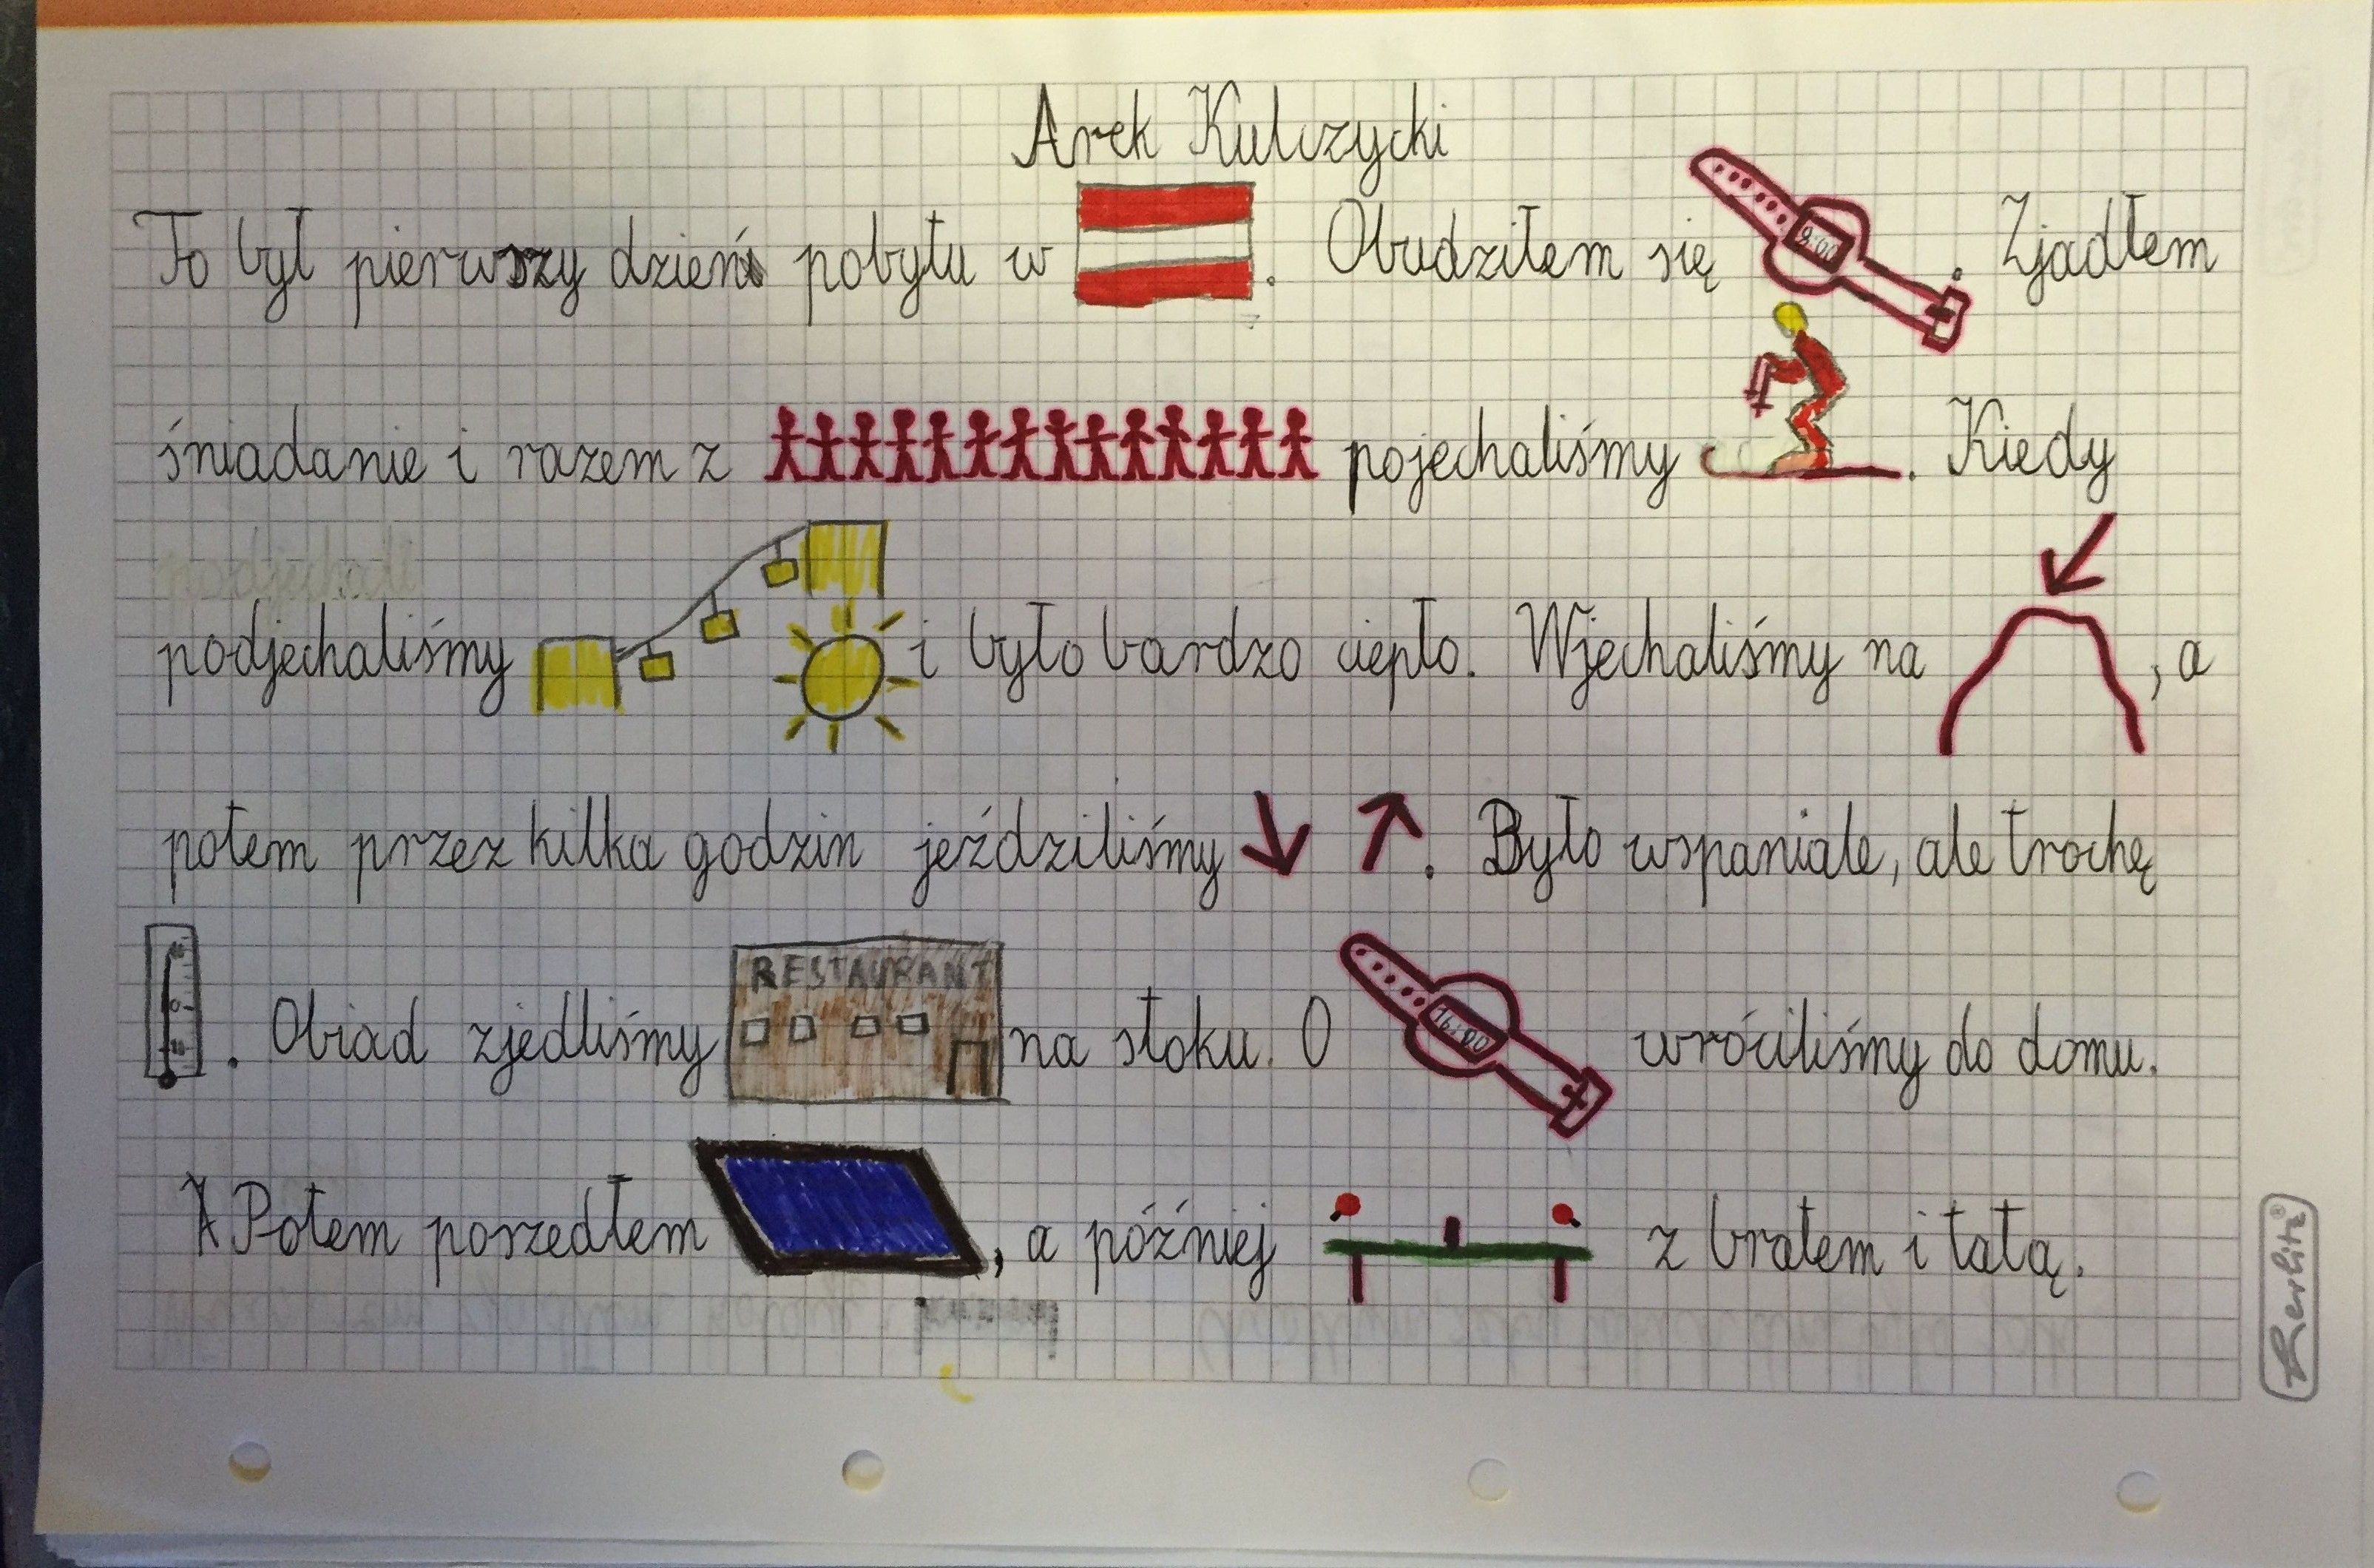 Arek Kulczycki
To był pierwszy dzień pobytu w . Obudziłem się 8:00 . Zjadłem
śniadanie i razem z pojechaliśmy . Kiedy
podjechali
podjechaliśmy i było bardzo ciepło. Wjechaliśmy na , a
potem przez kilka godzin jeździliśmy . Było wspaniale, ale trochę
RESTAURANT
. Obiad zjedliśmy na stoku. O 16:00 wróciliśmy do domu.
Potem poszedłem , a później z bratem i tatą.
Herlitz